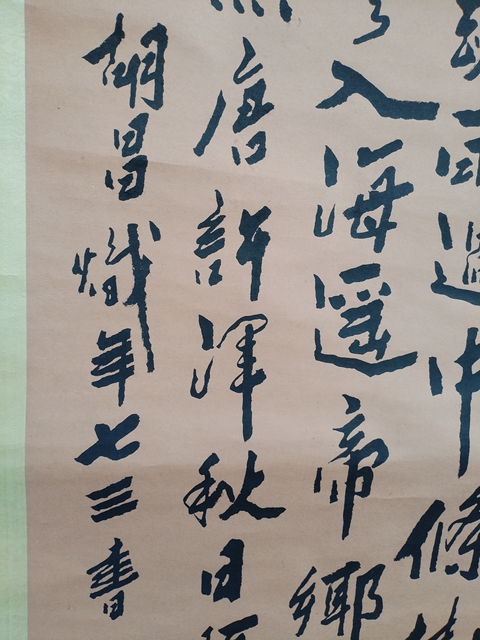 雨過中條
入海遥帝鄉
唐許渾秋日
胡昌熾年七三書